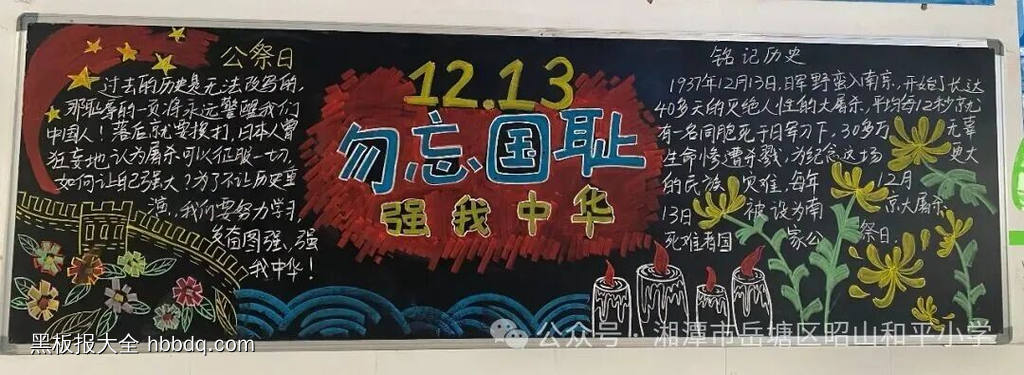 公祭日
过去的历史是无法改写的,
那耻辱的一页将永远警醒我们
中国人！落后就要挨打,日本人曾
狂妄地认为屠杀可以征服一切,
如何让自己强大？为了不让历史重
演,我们要努力学习,
发奋图强、强
我中华！
12.13
勿忘国耻
强我中华
铭记历史
1937年12月13日,日军野蛮入南京,开始了长达
40多天的灭绝人性的大屠杀,平均每12秒就
有一名同胞死于日军刀下,30多万 无辜
生命惨遭杀戮,为纪念这场 巨大
的民族 灾难,每年 12月
13日 被设为南 京大屠杀
死难者国 家公 祭日.
黑板报大全 hbbdq.com
公众号·湘潭市岳塘区昭山和平小学